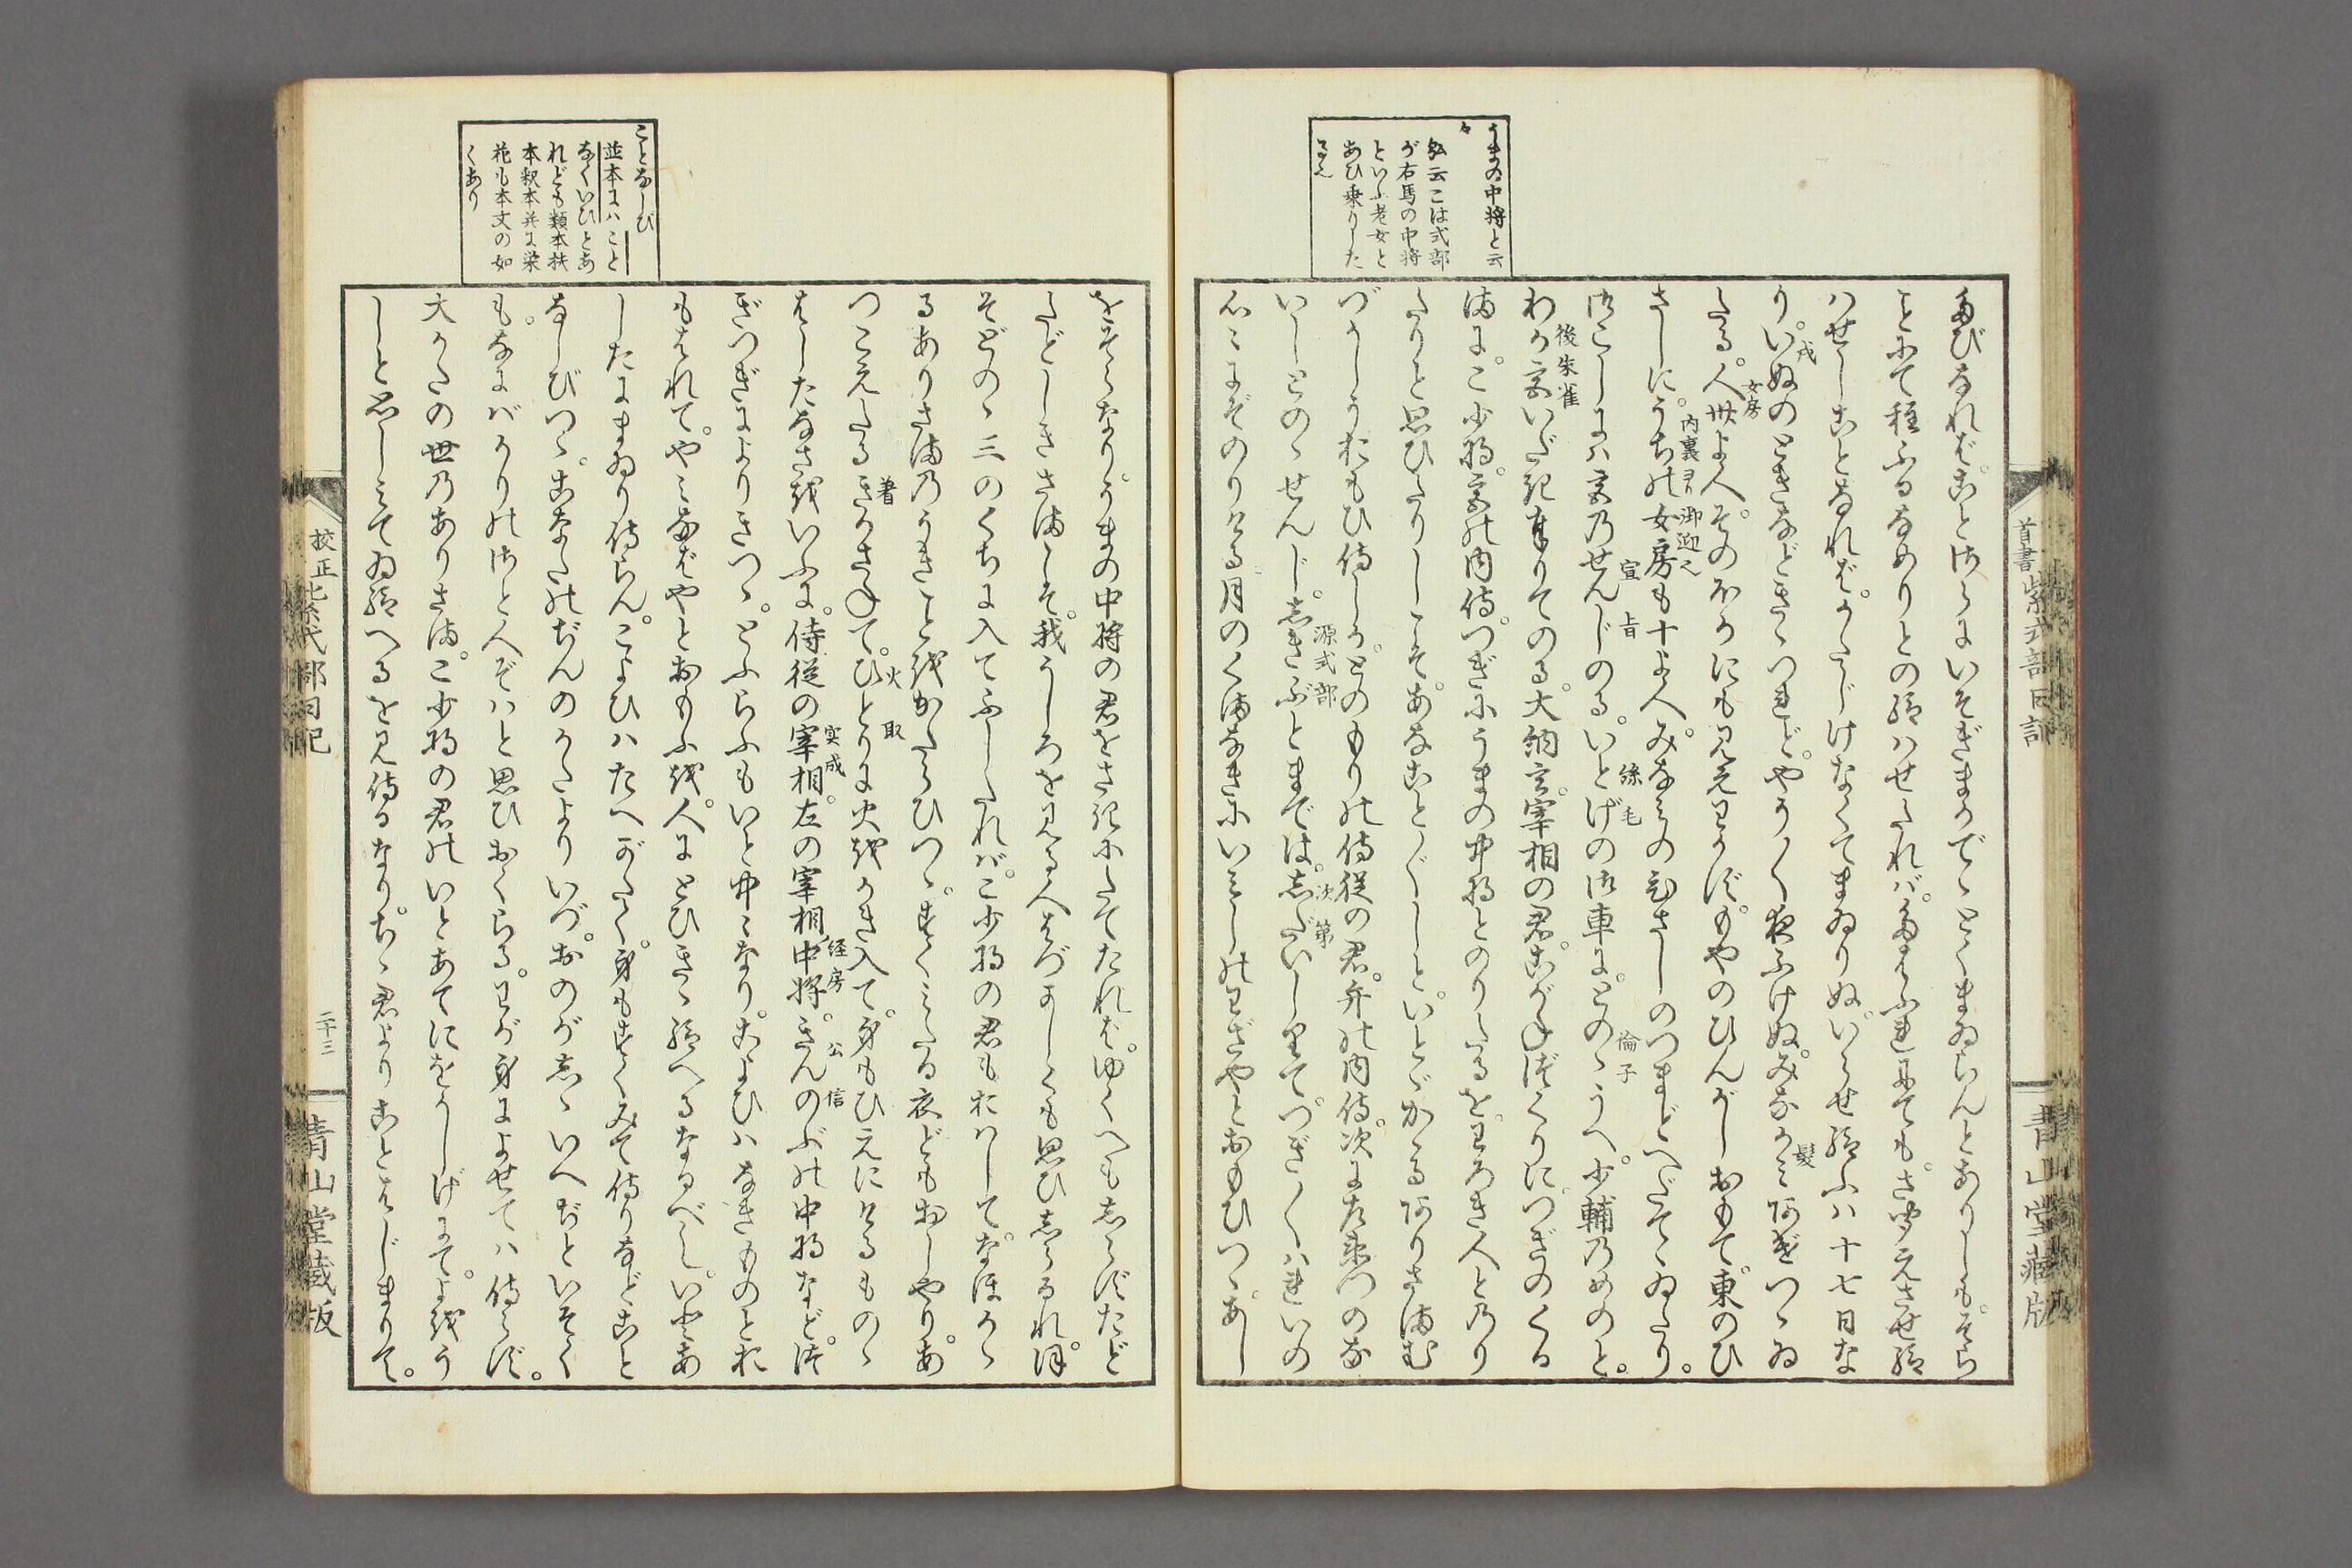 うまの中将と云
々
弘云こは式部
が右馬の中将
といふ老女と
あひ乗りした
るを
たびなればことはらにいそぎまかでゝとくまゐらんとありしもそら
ことにて程ふるなめりとの給はせたればたはふれにてもさ聞えさせ給
はせしことなればかたじけなくてまゐりぬいらせ給ふは十七日な
りいぬのときなどきゝつれどやう〳〵夜ふけぬみなかみあげつゝゐ
戌
髪
たる人卅よ人そのかほにも見えわかずもやのひんがしおもて東のひ
女房
さしにうちの女房も十よ人みなみのひさしのつまどへだてゝゐたり
内裏ヨリ御迎へ
御こしには宮のせんじのるいとげの御車にとのゝうへ少輔のめのと
宣旨
絲毛
倫子
わか宮いだき奉りてのる大納言宰相の君こがね作りにつぎのくる
後朱雀
まにこ少将宮の内侍つぎにうまの中将とのりたるをわろき人とのり
たりと思ひたりしこそあなこと〴〵しといとゞかゝるありさまむ
づかしうおもひ侍しかとのもりの侍従の君弁の内侍次に左衛門のな
いしとのゝせんじしきぶとまではしだいしりてつぎ〳〵はれいの
源式部
次第
心々にぞのりける月のくまなきにいみじのわざやとおもひつゝあし
首書紫式部日記
青山堂蔵版
ことなしび
並本にはこと
なくいひとあ
れども類本扶
本釈本并に染
花も本文の如
くあり
をそらなりうまの中将の君をさきにたてたればゆくへもしらずたど
たどしきさまこそ我うしろを見る人はづかしくも思ひしらるれほ
そどのゝ三のくちに入てふしたればこ少将の君もおはしてなほかゝ
るありさまのうきことをかたらひつゝすくみたる衣どもおしやりあ
つこえたるきかさねてひとりに火をかき入て身もひえにけるものゝ
着
火取
はしたなさをいふに侍従の宰相左の宰相中将きんのぶの中将などつ
実成
経房
公信
ぎつぎによりきつゝとふらふもいと中々なりこよひはなきものとお
もはれてやみなばやとおもふを人にとひきゝ給へるなるべしいとあ
したにまゐり侍らんこよひはたへがたく身もすくみて侍りなどこと
なしびつゝこなたのぢんのかたよりいづおのがしゝいへぢといそく
もなにばかりの里人ぞはと思ひおくらる我が身によせては侍らず
大かたの世のありさまこ少将の君のいとあてにをかしげにて世をう
しと思ししみてゐ給へるを見侍るなりちゝ君よりことはじまりて
校正紫式部日記
二十三
青山堂蔵版